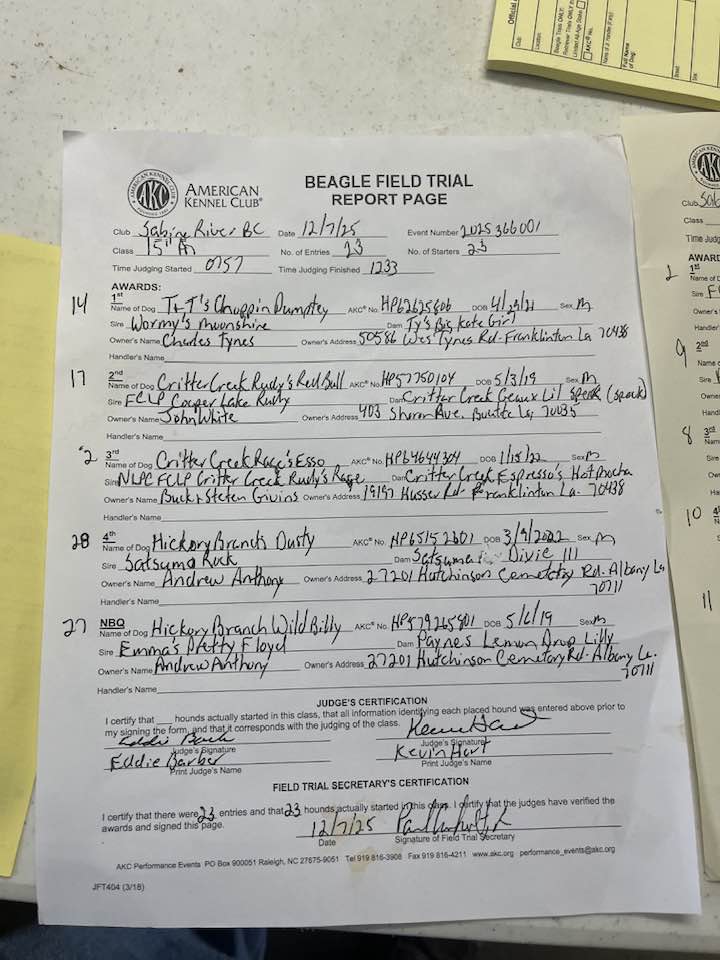 AMERICAN KENNEL CLUB®
BEAGLE FIELD TRIAL
REPORT PAGE
Club Sabine River BC Date 12/7/25 Event Number 2025366001
Class 15" M No. of Entries 23 No. of Starters 23
Time Judging Started 0757 Time Judging Finished 1233
AWARDS:
14 1st
Name of Dog T+T's Chuppin Dumptey AKC® No. HP62625806 DOB 4/29/21 Sex M
Sire Wormy's Moonshine Dam Ty's Big Kate Girl
Owner's Name Charles Tynes Owner's Address 50586 Wes Tynes Rd-Franklinton La 70438
Handler's Name
17 2nd
Name of Dog Critter Creek Rudy's Red Bull AKC® No. HP57750104 DOB 5/3/19 Sex M
Sire FCLP Cooper Lake Rusty Dam Critter Creek Geaux Lil Speak (speak)
Owner's Name John White Owner's Address 403 Sharon Ave. La 70035
Handler's Name
2 3rd
Name of Dog Critter Creek Rage's Esso AKC® No. HP64644304 DOB 1/15/22 Sex M
Sire NLPC FCLP Critter Creek Rudy's Rage Dam Critter Creek Espresso's Hot Mocha
Owner's Name Buck + Steten Givins Owner's Address 19197 Husser Rd- Franklinton La. 70438
Handler's Name
28 4th
Name of Dog Hickory Branch Dusty AKC® No. HP65152601 DOB 3/9/2022 Sex M
Sire Satsuma Rock Dam Satsuma Dixie III
Owner's Name Andrew Anthony Owner's Address 27201 Hutchinson Cemetary Rd. Albany La
70711
Handler's Name
27 NBQ
Name of Dog Hickory Branch Wild Billy AKC® No. HP579265801 DOB 5/6/19 Sex M
Sire Emma's Pretty Floyd Dam Paynes Lemon Drop Lilly
Owner's Name Andrew Anthony Owner's Address 27201 Hutchinson Cemetary Rd-Albany La.
70711
Handler's Name
JUDGE'S CERTIFICATION
I certify that ___ hounds actually started in this class, that all information identifying each placed hound was entered above prior to
my signing the form, and that it corresponds with the judging of the class.
Judge's Signature Judge's Signature
Eddie Barber Kevin Hart
Print Judge's Name Print Judge's Name
FIELD TRIAL SECRETARY'S CERTIFICATION
I certify that there were 23 entries and that 23 hounds actually started in this class. I certify that the judges have verified the
awards and signed this page.
12/7/25
Date Signature of Field Trial Secretary
AKC Performance Events PO Box 900051 Raleigh, NC 27675-9051 Tel 919 816-3908 Fax 919 816-4211 www.akc.org performance_events@akc.org
JFT404 (3/18)